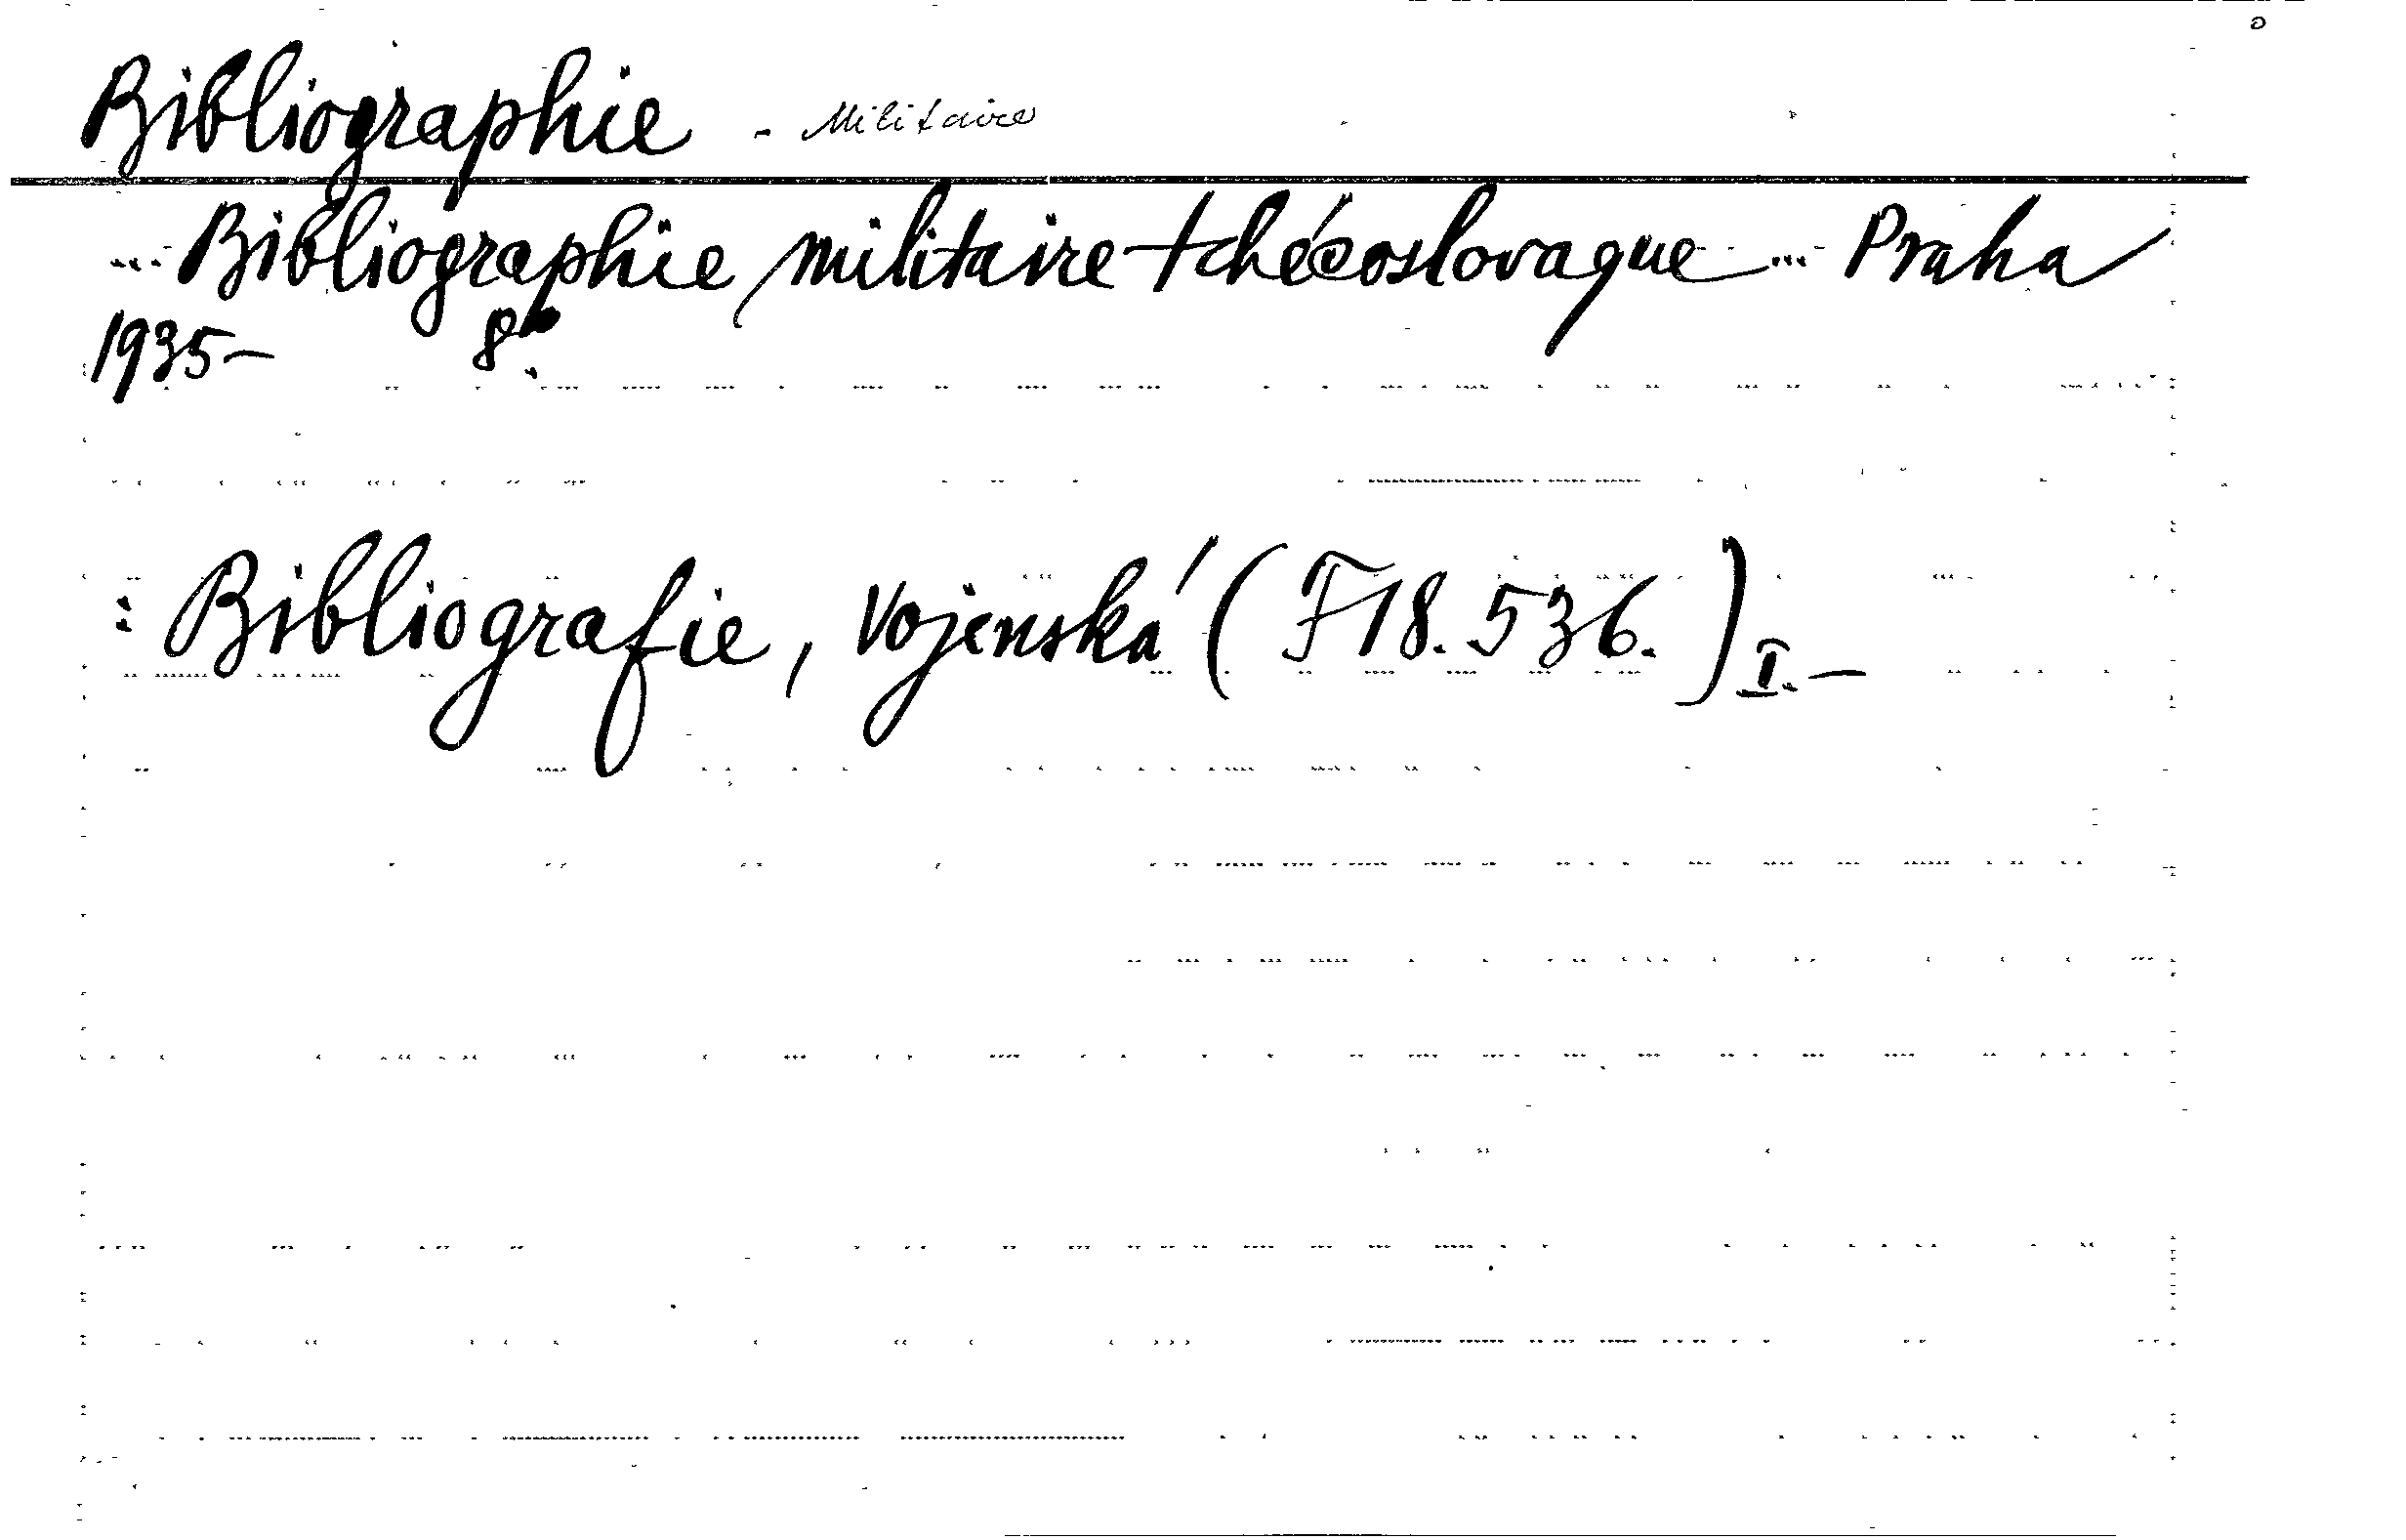 Bibliographie - Militaire
... Bibliographie militaire tchécoslovaque ... Praha
1935- 8°.
: Bibliografie, Vojenská (F18.536.) I.-